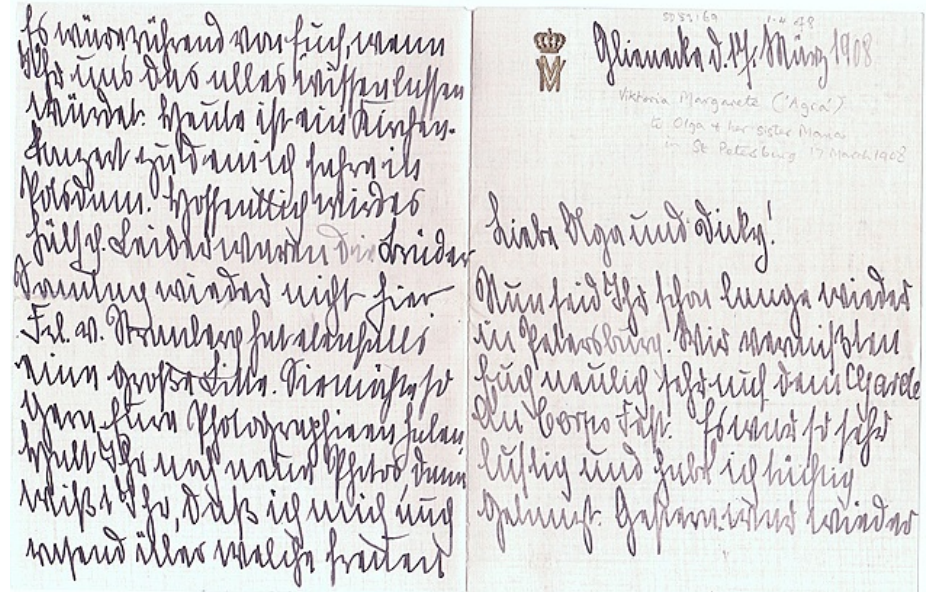 Es wäre rührend von Euch, wenn
Ihr uns das alles wissen lassen
würdet. Heute ist ein Kirchen-
Konzert zu dem ich fahre in
Potsdam. Hoffentlich wird es
hübsch. Leider waren die Brüder
Sonntag wieder nicht hier
Frl. v. hat ebenfalls
eine große Bitte. Sie möchte so
gern Eure Photographieen haben,
Habt Ihr noch neue Photos, dann
wißt Ihr, daß ich mich auch
rasend über welche freuen
1.4.48
M
Glienecke d. 17. März 1908
Viktoria Margarete ('Agra')
to Olga + her sister Maria
in St Petersburg 17 March 1908
Liebe Olga und Dicky!
Nun seid Ihr schon lange wieder
in Petersburg. Wir vermißten
Euch neulich sehr auf dem Garde
du Corps Fest. Es war so sehr
lustig und habe ich tüchtig
getanzt. Gestern war wieder